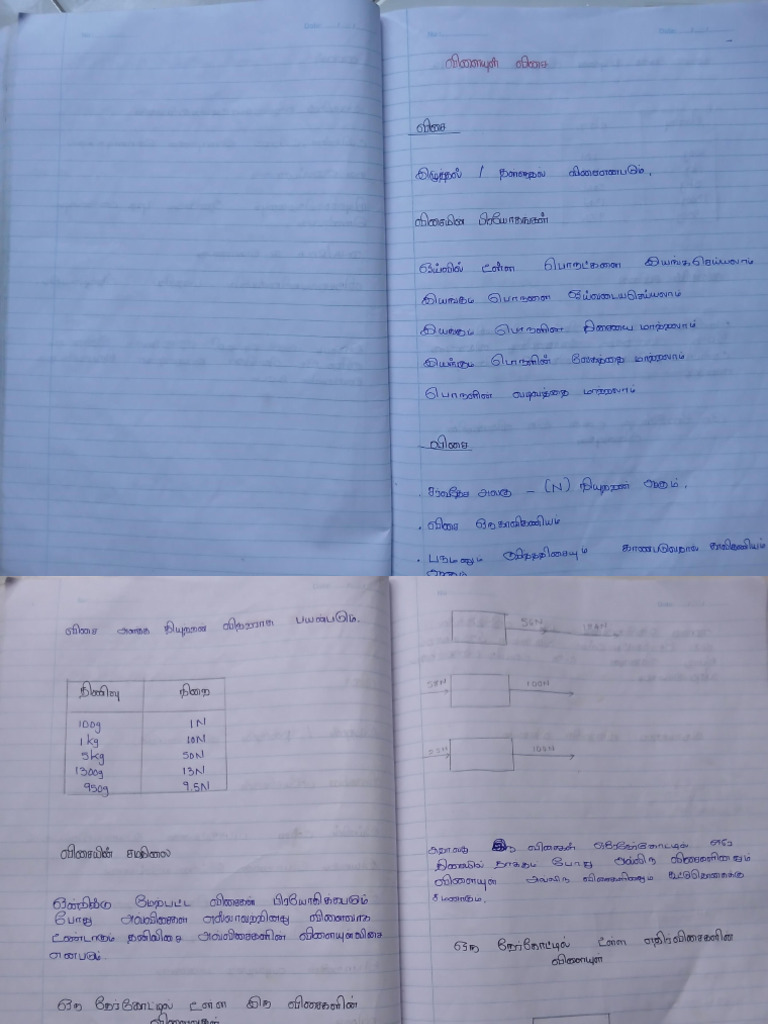 விளையுள் விசை
விசை
இழுத்தல் / தள்ளுதல் விசைஎனப்படும்.
விசையின் பிரயோகங்கள்
ஓய்வில் உள்ள பொருட்களை இயங்கசெய்யலாம்
இயங்கும் பொருளை ஓய்வடையசெய்யலாம்
இயங்கும் பொருளின் திசையை மாற்றலாம்
இயங்கும் பொருளின் வேகத்தை மாற்றலாம்
பொருளின் வடிவத்தை மாற்றலாம்
விசை
. சர்வதேச அலகு - (N) நியூற்றன் ஆகும்.
. விசை ஒரு காவிகணியம்
. பருமனும் திசையும் காணப்படுவதால் காவிகணியம்
ஆகும்
விசை அளக்க நியூற்றன் விற்றராசு பயன்படும்.
திணிவு நிறை
100g 1N
1kg 10N
5kg 50N
1300g 13N
950g 9.5N
விசையின் சமநிலை
ஒன்றிற்கு மேற்பட்ட விசைகள் பிரயோகிக்கப்படும்
போது அவ்விசைகள் எல்லாவற்றினது விளைவாக
உண்டாகும் தனிவிசை அவ்விசைகளின் விளையுளவிசை
எனப்படும்.
ஒரு நேர்கோட்டில் உள்ள இரு விசைகளின்
விளைவுகள்
100N
100N
அதாவது இரு விசைகள் ஒரேநேர்கோட்டில் ஒரே
திசையில் தாக்கும் போது அவ்விரு விசைகளினதும்
விளையுள் அவ்விரு விசைகளினதும் கூட்டுத்தொகைக்கு
சமனாகும்.
ஒரு நேர்கோட்டில் உள்ள எதிர்விசைகளின்
விளையுள